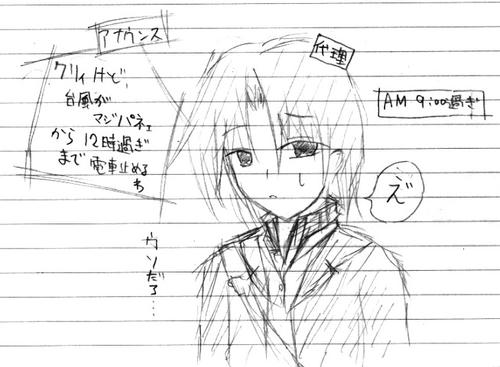 アナウンス
クリィけど、
台風が
マジパネェ
から12時過ぎ
まで電車止める
わ
代理
AM 9:00過ぎ
…え゛
ウソだろ…